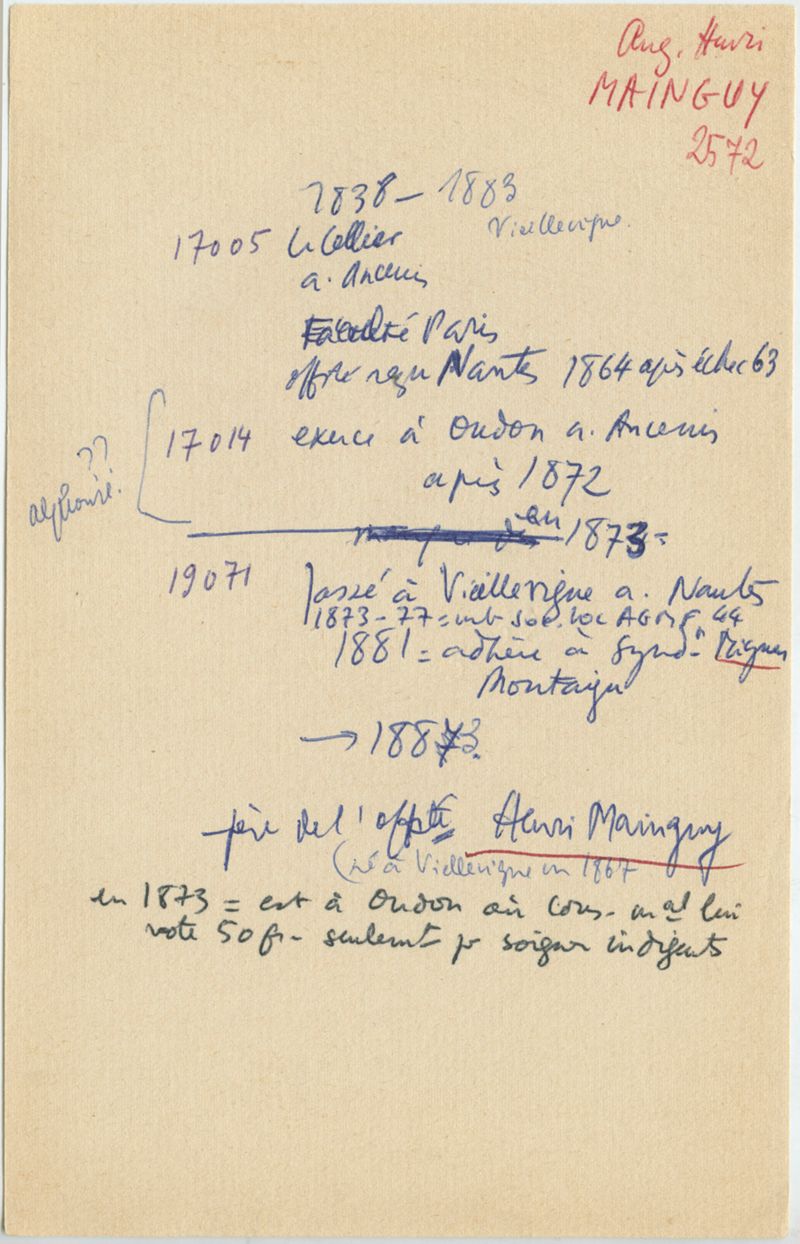 Aug. Henri
MAINGUY
2572
1838 – 1883
Vieillevigne.
17005 Le Cellier
a. Ancenis
Faculté Paris
offté reçu Nantes 1864 après échec 63
17014 exerce à Oudon a. Ancenis
??
après 1872
alphonse.
en 1873 =
19071 passé à Vieillevigne a. Nantes
1873 – 77 = mb soc. loc AGMF 44
1881 = adhère à Synd.
Montaigu
→ 1883.
père de l'offté Henri Mainguy
(né à Vieillevigne en 1867
en 1873 = est à Oudon où Cons. mal lui
vote 50 fr – seulemt pr soigner indigents